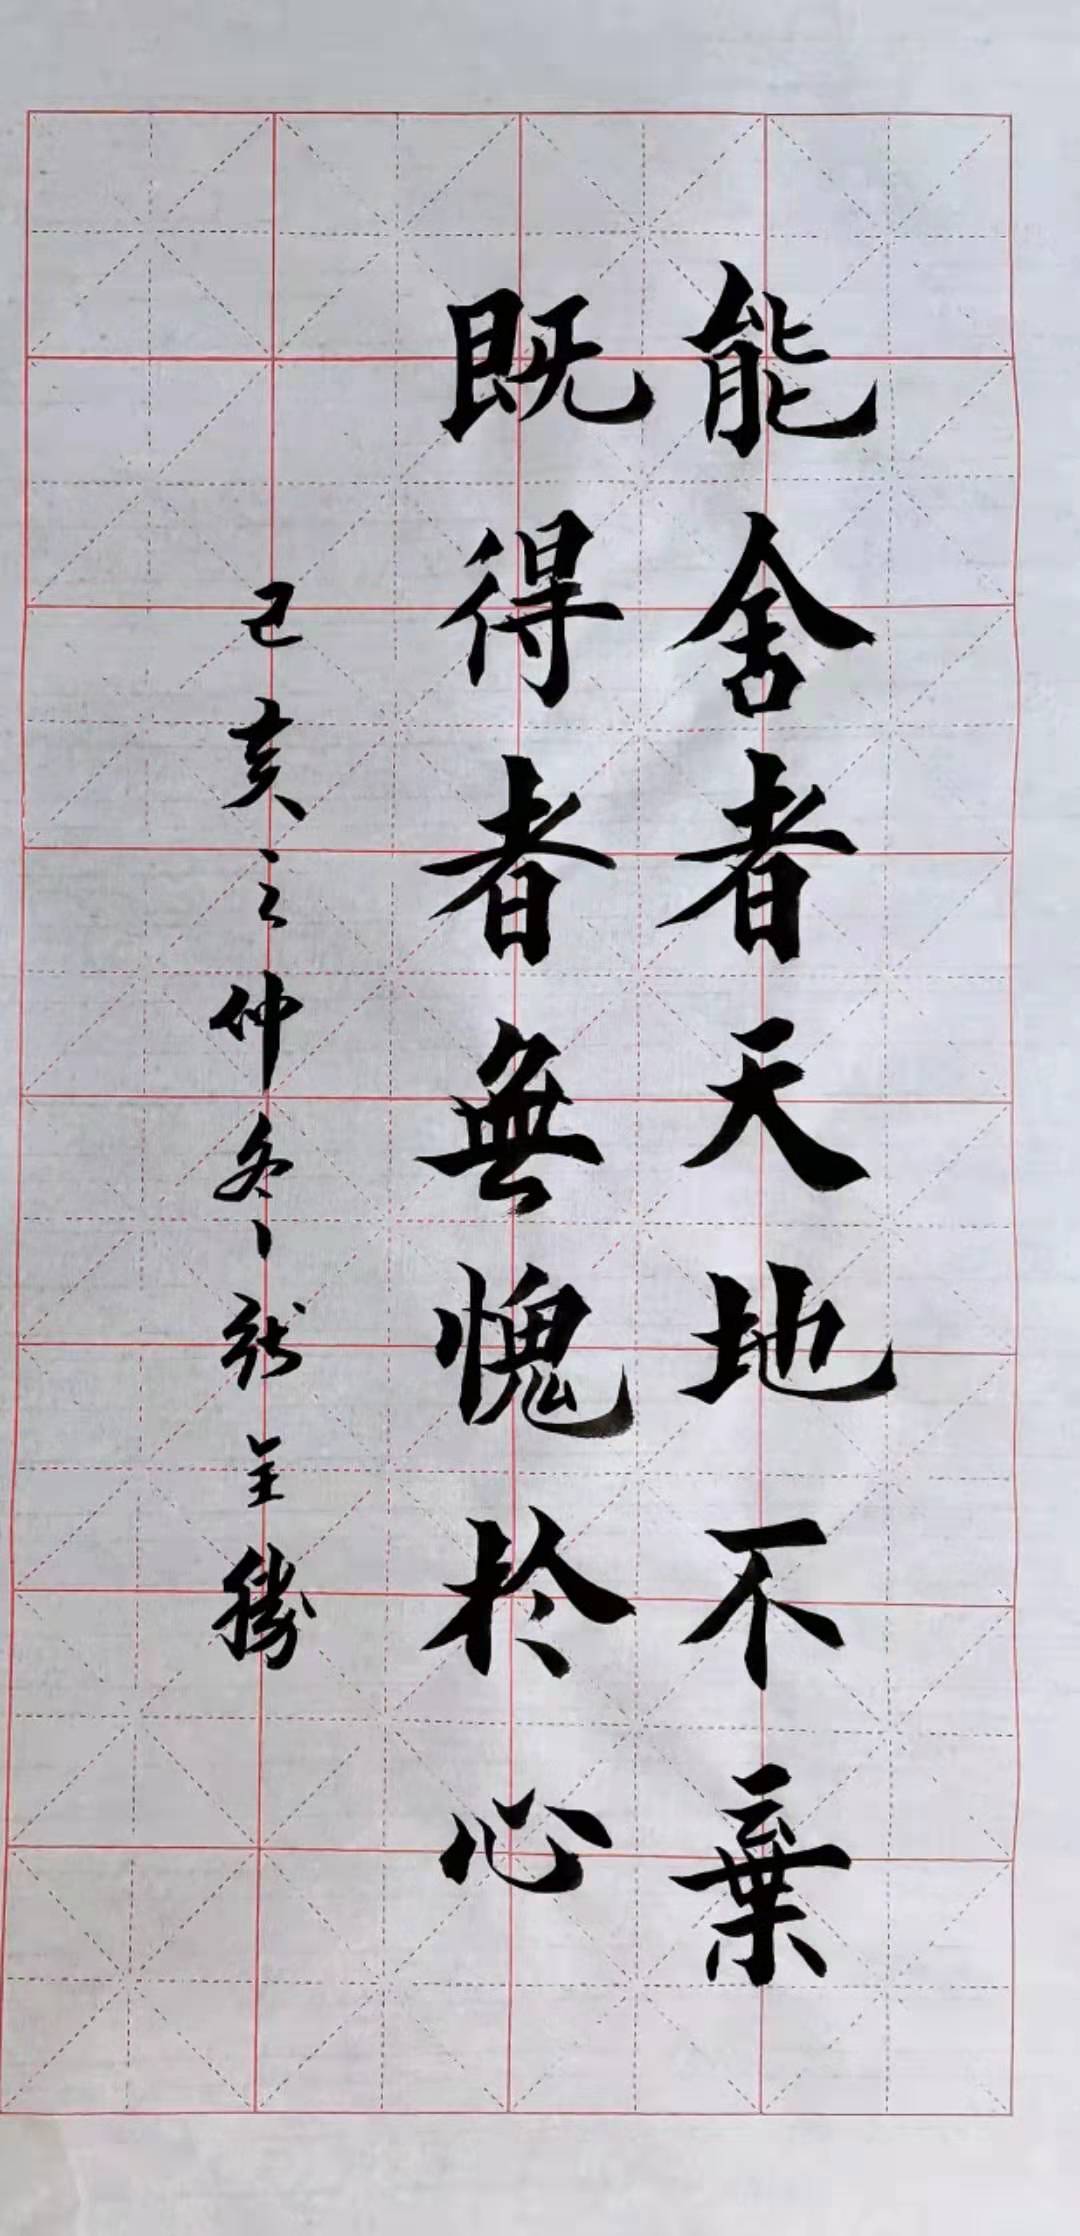 能舍者天地不棄
既得者無愧於心
己亥之仲冬張全勝